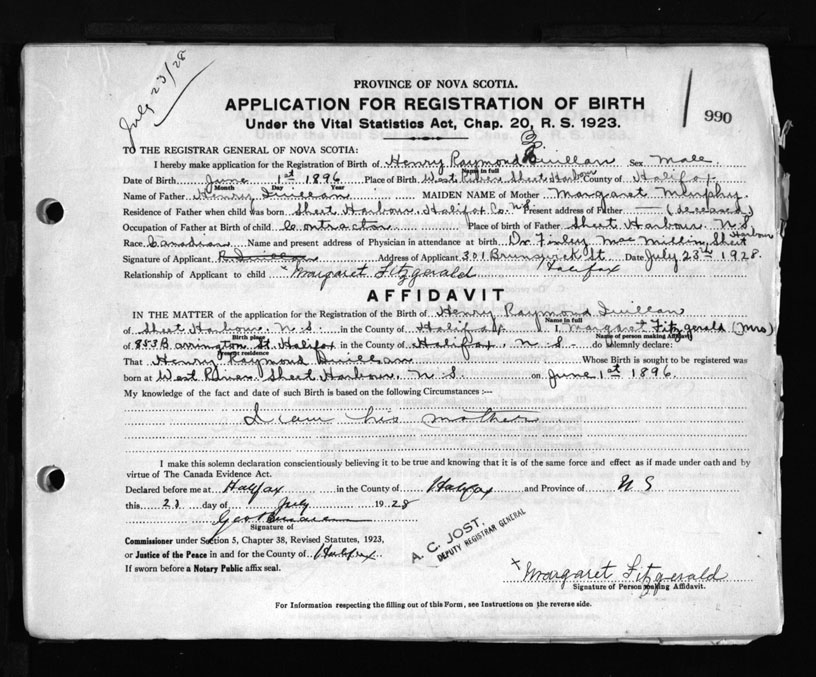 July 23/28
PROVINCE OF NOVA SCOTIA.
APPLICATION FOR REGISTRATION OF BIRTH
Under the Vital Statistics Act, Chap. 20, R. S. 1923.
990
TO THE REGISTRAR GENERAL OF NOVA SCOTIA:
I hereby make application for the Registration of Birth of Henry Raymond Quillan Sex Male
Name in full
Date of Birth June 1st 1896 Place of Birth West River Sheet Harbour County of Halifax
Month Day Year
Name of Father Henry Quillan MAIDEN NAME of Mother Margaret Murphy
Residence of Father when child was born Sheet Harbour, Halifax Co. N.S. Present address of Father (deceased)
Occupation of Father at Birth of child Contractor Place of birth of Father Sheet Harbour N.S.
Race Canadian Name and present address of Physician in attendance at birth Dr Finlay MacMillin, Sheet Harbour
Signature of Applicant Address of Applicant 301 Brunswick St Halifax Date July 23rd 1928
Relationship of Applicant to child x Margaret Fitzgerald
AFFIDAVIT
IN THE MATTER of the application for the Registration of the Birth of Henry Raymond Quillan
Name in full
of Sheet Harbour N.S. in the County of Halifax I, Margaret Fitzgerald (Mrs)
Birth place Name of person making Affidavit
of 853 Barrington St. Halifax in the County of Halifax, N.S. do solemnly declare:
Present residence
That Henry Raymond Quillan Whose Birth is sought to be registered was
born at West River Sheet Harbour, N.S. on June 1st 1896.
My knowledge of the fact and date of such Birth is based on the following Circumstances :—
I am his mother
I make this solemn declaration conscientiously believing it to be true and knowing that it is of the same force and effect as if made under oath and by
virtue of The Canada Evidence Act.
Declared before me at Halifax in the County of Halifax and Province of N S
this 23 day of July 1928
Signature of
Commissioner under Section 5, Chapter 38, Revised Statutes, 1923,
or Justice of the Peace in and for the County of Halifax
If sworn before a Notary Public affix seal.
A. C. JOST.
DEPUTY REGISTRAR GENERAL
x Margaret Fitzgerald
Signature of Person making Affidavit.
For Information respecting the filling out of this Form, see Instructions on the reverse side.